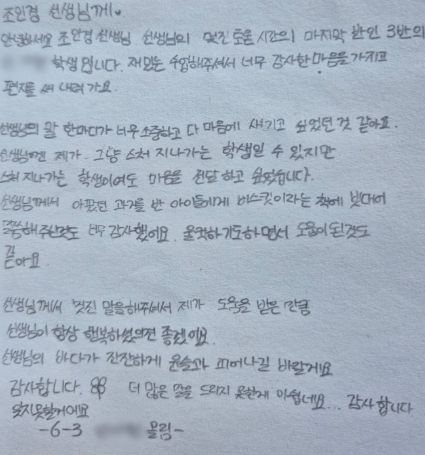 조인경 선생님께♥
안녕하세요 조인경 선생님 선생님의 멋진 도움 시간의 마지막 반인 3반의
학생 입니다. 재밌는 수업해주셔서 너무 감사한 마음을 가지고
편지를 써 내려 가요.
선생님의 말 한마디가 너무 소중하고 다 마음에 새기고 싶었던 것 같아요.
선생님껜 제가 그냥 스쳐 지나가는 학생일 수 있지만
스쳐 지나가는 학생이여도 마음을 전달 하고 싶었습니다.
선생님께서 아팠던 과거를 반 아이들에게 비스킷이라는 책에 빗대어
말씀해주신것도 너무 감사했어요. 울컥하기도하면서 도움이 된것도
같
아요
선생님께서 멋진 말을해주셔서 제가 도움을 받은 만큼
선생님이 항상 행복하셨으면 좋겠어요.
선생님의 바다가 잔잔하게 윤슬과 피어나길 바랄게요
감사합니다. 더 많은 말을 드리지 못한게 아쉽네요... 감사합니다
잊지못할거에요
-6-3 올림-